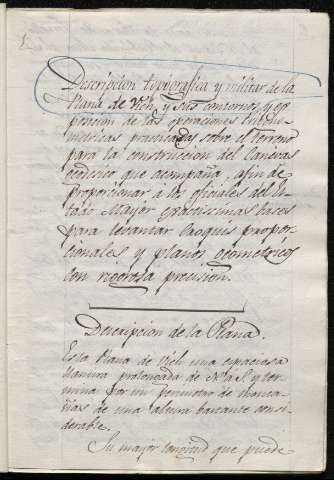 Descripcion topografica y militar de la
Plana de Vich y sus contornos, y es
posicion de las operaciones trigono
metricas practicadas sobre el terreno
para la construccion del Canevas
geodesico que acompaña, afin de
proporcionar á los oficiales del Es
tado Mayor exactisimas bases
para levantar Croquis propor
cionales y planos geometricos
con rigorosa precision.
Descripcion de la Plana.
Es la Plana de Vich una espaciosa
llanura prolongada de N. á S. y ter
mina por un perimetro de monta
ñas de una altura bastante consi
derable.
Su mayor longitud que puede